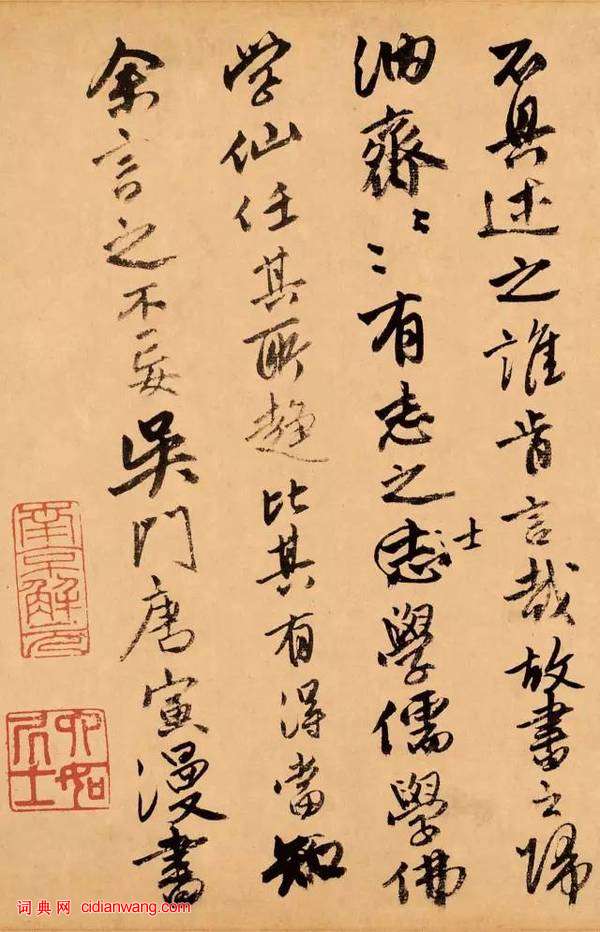 不具述之誰肯言哉故書之歸
納齋〻〻有志之志士學儒學佛
学仙任其所趨比其有得當知
余言之不妄吳門唐寅漫書
南京解元
六如居士
词典网 cidianwang.com